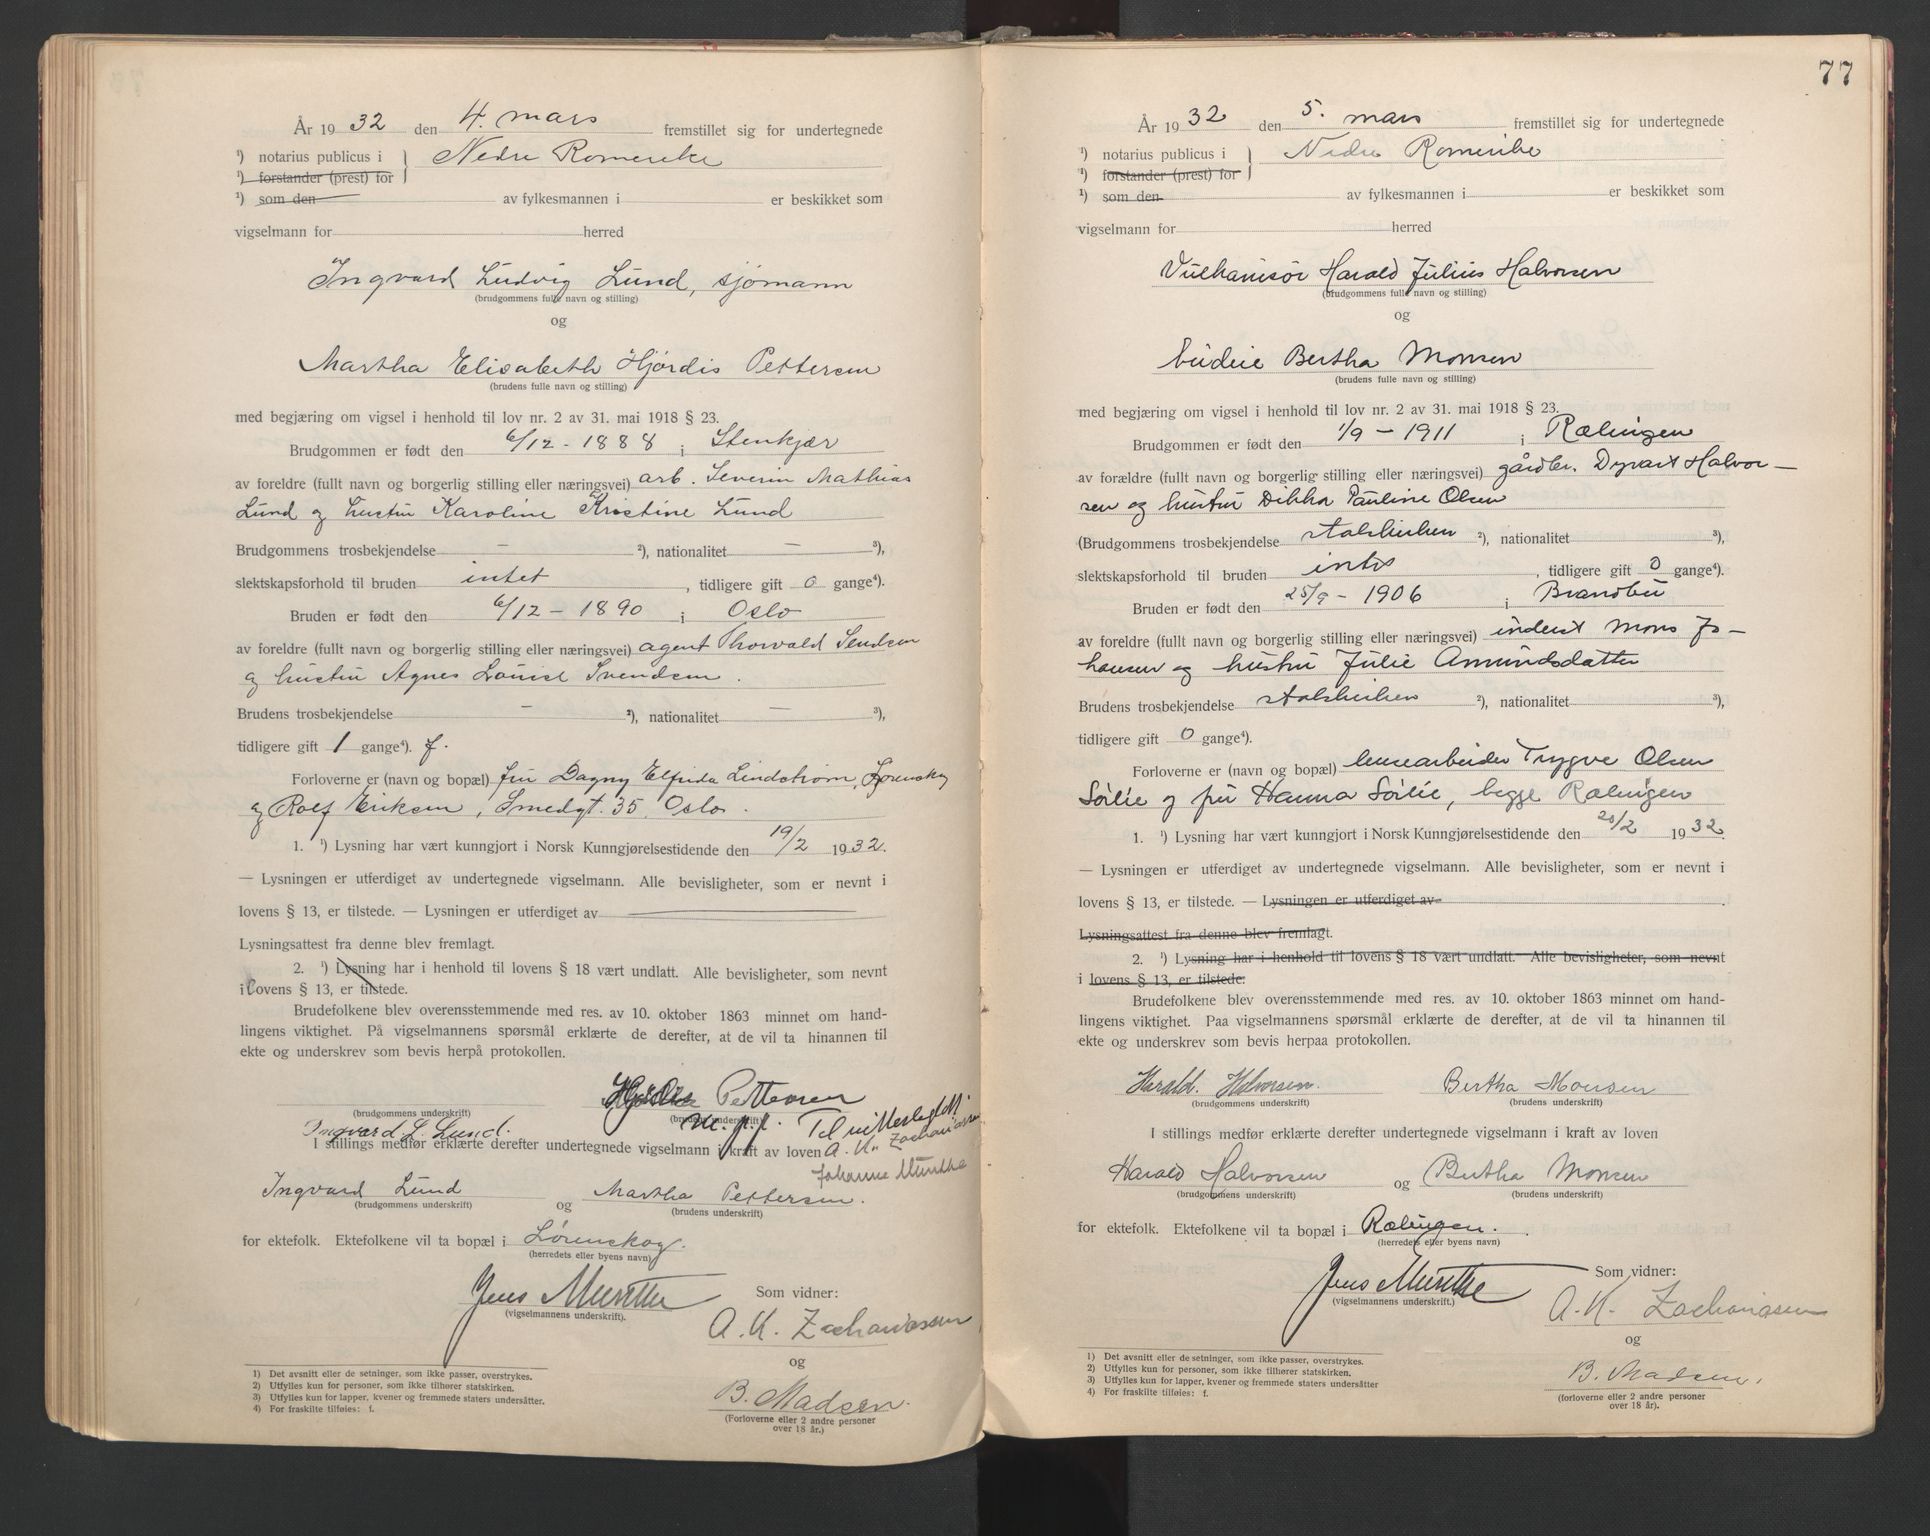 År 1932 den 4. mars fremstillet sig for undertegnede
¹) notarius publicus i } Nedre Romerike
¹) forstander (prest) for
¹) som den av fylkesmannen i er beskikket som
vigselmann for herred
Ingvard Ludvig Lund, sjømann
(brudgommens fulle navn og stilling)
og
Martha Elisabeth Hjørdis Pettersen
(brudens fulle navn og stilling)
med begjæring om vigsel i henhold til lov nr. 2 av 31. mai 1918 § 23.
Brudgommen er født den 6/12 - 1888 i Stenkjær
av foreldre (fullt navn og borgerlig stilling eller næringsvei) arb. Severin Mathias
Lund og hustru Karoline Kristine Lund
Brudgommens trosbekjendelse — ²), nationalitet — ³),
slektskapsforhold til bruden intet, tidligere gift 0 gange⁴).
Bruden er født den 6/12 - 1890 i Oslo
av foreldre (fullt navn og borgerlig stilling eller næringsvei) agent Thorvald Sendsen
og hustru Agnes Louise Svendsen.
Brudens trosbekjendelse — ²), nationalitet — ³),
tidligere gift 1 gange⁴). f.
Forloverne er (navn og bopæl) fru Dagny Elfrida Lindstrøm, Lørenskog
og Rolf Eriksen, Smedgt. 35, Oslo.
1. ¹) Lysning har vært kunngjort i Norsk Kunngjørelsestidende den 19/2 1932.
— Lysningen er utferdiget av undertegnede vigselmann. Alle bevisligheter, som er nevnt i
lovens § 13, er tilstede. — Lysningen er utferdiget av
Lysningsattest fra denne blev fremlagt.
2. ¹) Lysning har i henhold til lovens § 18 vært undlatt. Alle bevisligheter, som nevnt
i lovens § 13, er tilstede.
Brudefolkene blev overensstemmende med res. av 10. oktober 1863 minnet om hand-
lingens viktighet. På vigselmannens spørsmål erklærte de derefter, at de vil ta hinannen til
ekte og underskrev som bevis herpå protokollen.
Hjørdis Pettersen
(brudgommens underskrift) (brudens underskrift)
m. p. p. Til vitterlighet
Ingvard. L. Lund.
I stillings medfør erklærte derefter undertegnede vigselmann i kraft av loven A. K. Zachariassen
Johanne Munthe
Ingvard Lund og Martha Pettersen.
(brudgommens underskrift) (brudens underskrift)
for ektefolk. Ektefolkene vil ta bopæl i Lørenskog.
(herredets eller byens navn)
Jens Munthe
(vigselmannens underskrift).
Som vidner:
A. K. Zachariassen
og
B. Madsen.
(Forloverne eller 2 andre personer
over 18 år.)
1) Det avsnitt eller de setninger, som ikke passer, overstrykes.
2) Utfylles kun for personer, som ikke tilhører statskirken.
3) Utfylles kun for lapper, kvener og fremmede staters undersåtter.
4) For fraskilte tilføies: f.
77
År 1932 den 5. mars fremstillet sig for undertegnede
¹) notarius publicus i } Nedre Romerike
¹) forstander (prest) for
¹) som den av fylkesmannen i er beskikket som
vigselmann for herred
Vulkanisør Harald Julius Halvorsen
(brudgommens fulle navn og stilling)
og
budeie Bertha Monsen
(brudens fulle navn og stilling)
med begjæring om vigsel i henhold til lov nr. 2 av 31. mai 1918 § 23.
Brudgommen er født den 1/9 - 1911 i Rælingen
av foreldre (fullt navn og borgerlig stilling eller næringsvei) gårdbr. Dyvart Halvor-
sen og hustru Dikka Pauline Olsen
(Brudgommens trosbekjendelse statskirken ²), nationalitet ³),
slektskapsforhold til bruden intet, tidligere gift 0 gange⁴).
Bruden er født den 25/9 - 1906 i Brandbu
av foreldre (fullt navn og borgerlig stilling eller næringsvei) inderst Mons Jo-
hansen og hustru Julie Amundsdatter
Brudens trosbekjendelse statskirken ²), nationalitet ³),
tidligere gift 0 gange⁴).
Forloverne er (navn og bopæl) lensearbeider Trygve Olsen
Sørlie og fru Hanna Sørlie, begge Rælingen
1. ¹) Lysning har vært kunngjort i Norsk Kunngjørelsestidende den 20/2 1932.
— Lysningen er utferdiget av undertegnede vigselmann. Alle bevisligheter, som er nevnt i
lovens § 13, er tilstede. — Lysningen er utferdiget av
Lysningsattest fra denne blev fremlagt.
2. ¹) Lysning har i henhold til lovens § 18 vært undlatt. Alle bevisligheter, som nevnt
i lovens § 13, er tilstede.
Brudefolkene blev overensstemmende med res. av 10. oktober 1863 minnet om hand-
lingens viktighet. Paa vigselmannens spørsmål erklærte de derefter, at de vil ta hinannen til
ekte og underskrev som bevis herpaa protokollen.
Harald. Halvorsen. Bertha Monsen
(brudgommens underskrift) (brudens underskrift)
I stillings medfør erklærte derefter undertegnede vigselmann i kraft av loven
Harald Halvorsen og Bertha Monsen
(brudgommens underskrift) (brudens underskrift)
for ektefolk. Ektefolkene vil ta bopæl i Rælingen.
(herredets eller byens navn)
Jens Munthe
(vigselmannens underskrift.)
Som vidner:
A. K. Zachariassen
og
B. Madsen.
(forloverne eller 2 andre personer
over 18 år).
1) Det avsnitt eller de setninger, som ikke passer, overstrykes.
2) Utfylles kun for personer, som ikke tilhører statskirken.
3) Utfylles kun for lapper, kvener og fremmede staters undersåtter
4) For fraskilte tilføies: f.